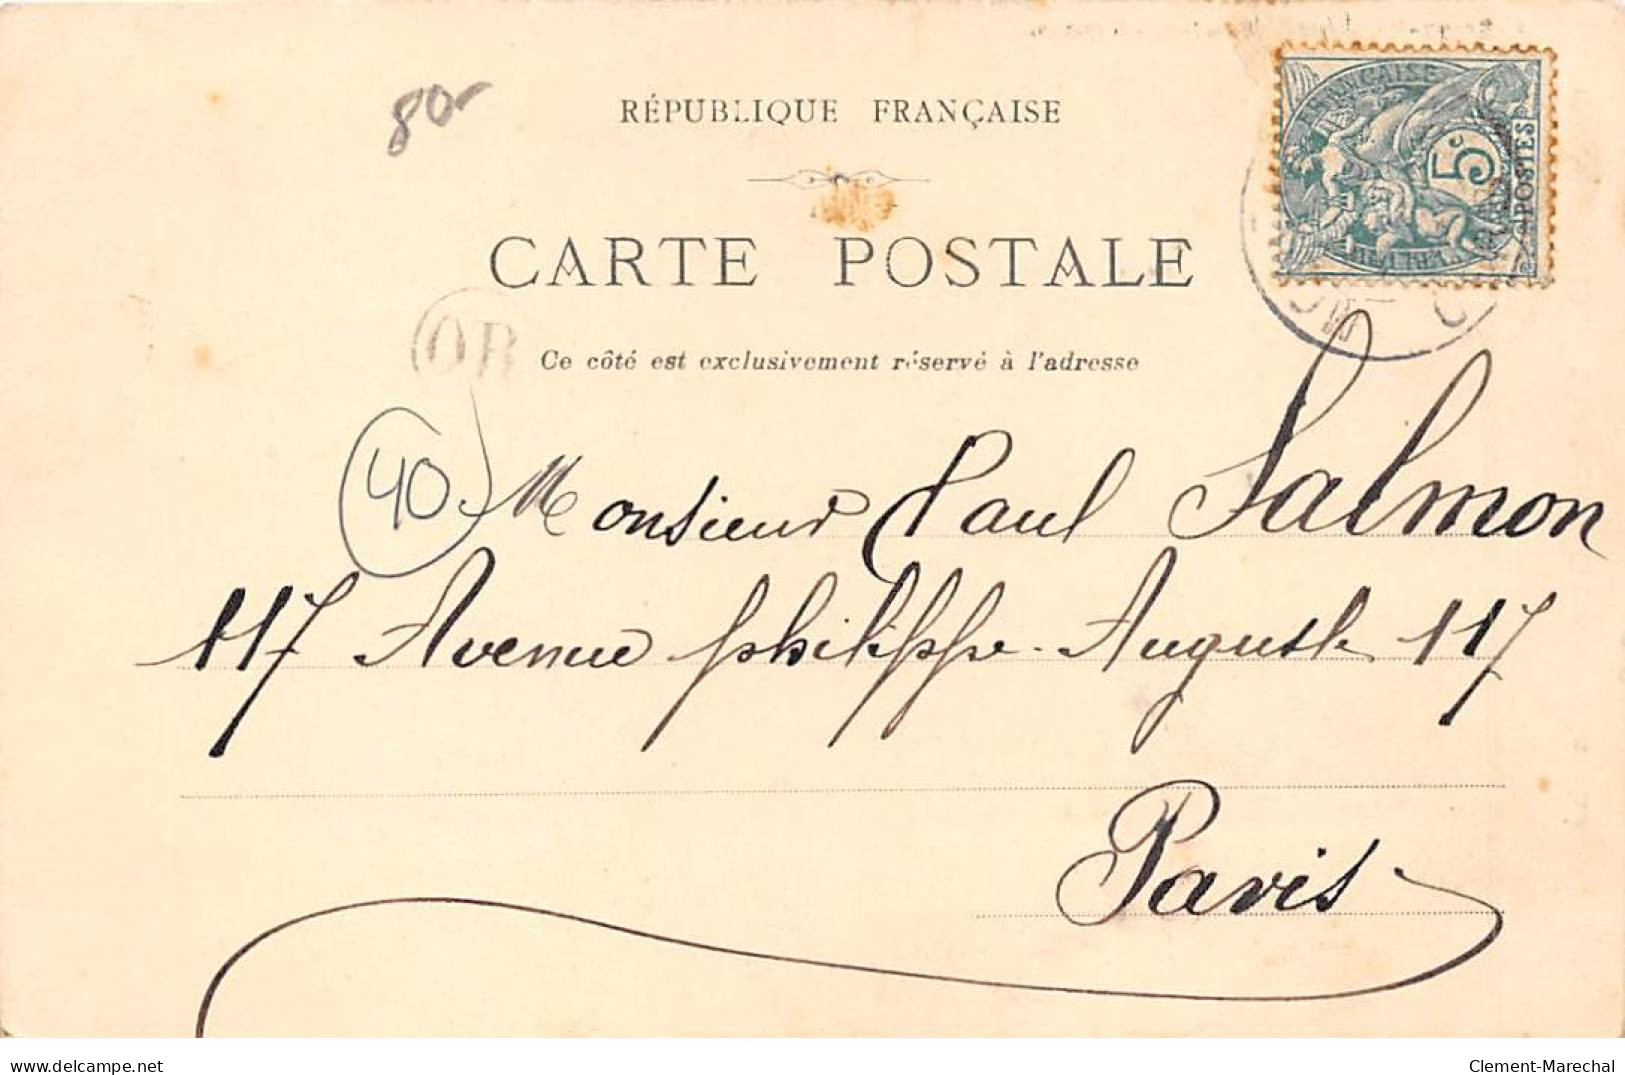 80
RÉPUBLIQUE FRANÇAISE
FRANÇAISE
5c
POSTES
CARTE POSTALE
OR
Ce côté est exclusivement réservé à l'adresse
40
Monsieur Paul Salmon
117 Avenue philippe-Auguste 117
Paris
delcampe.net
Clement-Marechal